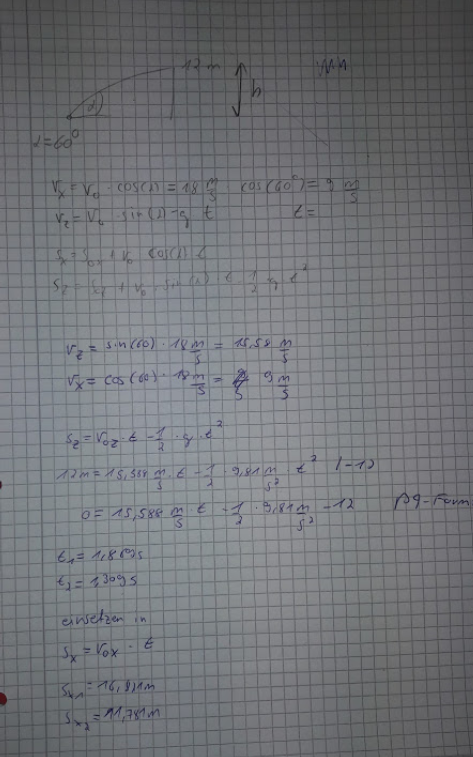 12 m h
α
α=60°
Vx = V0 · cos(α) = 18 m/s · cos(60°) = 9 m/s
Vz = V0 · sin(α) - g t t =
Sx = S0x + V0 cos(α) t
Sz = S0z + V0 · sin(α) · t - 1/2 g t²
Vz = sin(60) · 18 m/s = 15,58 m/s
Vx = cos(60) · 18 m/s = 9 m/s
Sz = V0z · t - 1/2 · g · t²
12m = 15,588 m/s · t - 1/2 · 9,81 m/s² t² |-12
0 = 15,588 m/s · t - 1/2 · 9,81 m/s² - 12 pq-Form
t2 = 1,309s
einsetzen in
Sx = V0x · t
Sx2 = 11,781m